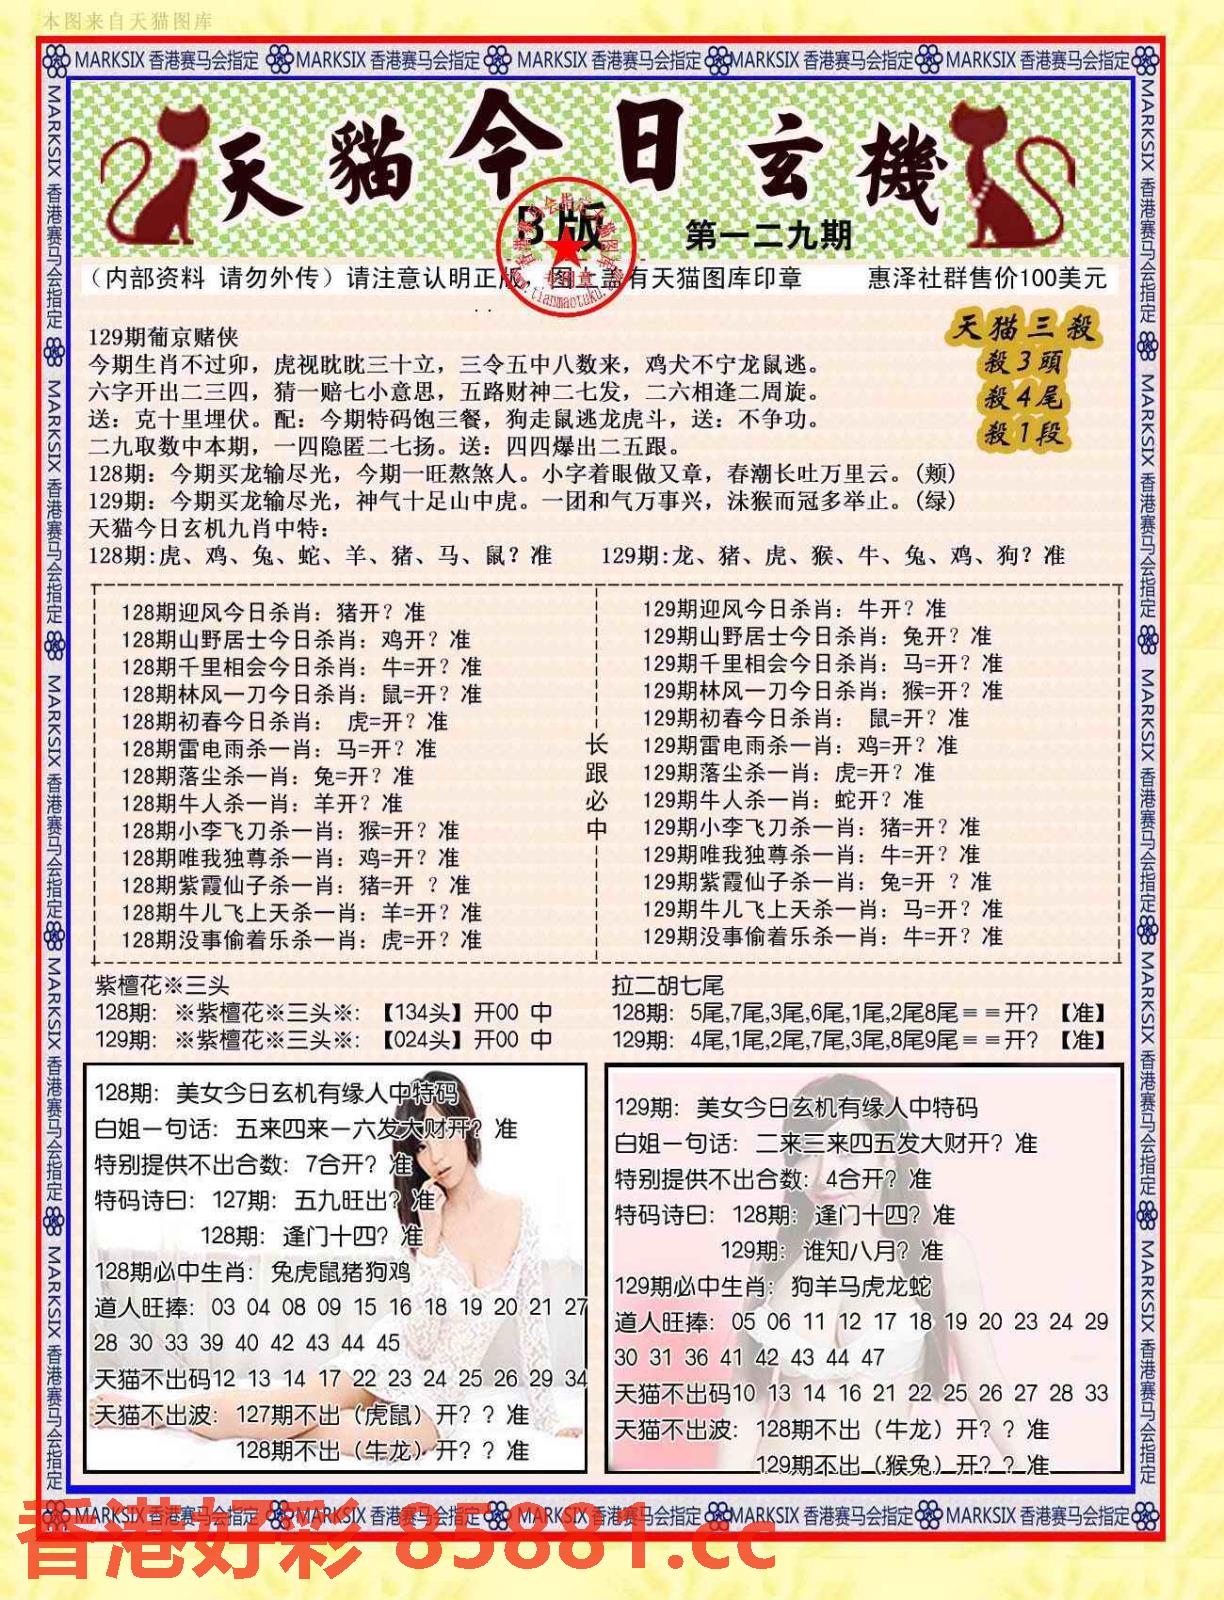 本图来自天猫图库
MARKSIX 香港赛马会指定 MARKSIX 香港赛马会指定 MARKSIX 香港赛马会指定 MARKSIX 香港赛马会指定 MARKSIX 香港赛马会指定
MARKSIX 香港赛马会指定 MARKSIX 香港赛马会指定 MARKSIX 香港赛马会指定 MARKSIX 香港赛马会指定 MARKSIX 香港赛马会指定
天貓今日玄機
B版
第一二九期
（内部资料 请勿外传）请注意认明正版 图上盖有天猫图库印章 惠泽社群售价100美元
天猫三殺
殺3頭
殺4尾
殺1段
129期葡京赌侠
今期生肖不过卯，虎视眈眈三十立，三令五中八数来，鸡犬不宁龙鼠逃。
六字开出二三四，猜一赔七小意思，五路财神二七发，二六相逢二周旋。
送：克十里埋伏。配：今期特码饱三餐，狗走鼠逃龙虎斗，送：不争功。
二九取数中本期，一四隐匿二七扬。送：四四爆出二五跟。
128期：今期买龙输尽光，今期一旺熬煞人。小字着眼做又章，春潮长吐万里云。(颊)
129期：今期买龙输尽光，神气十足山中虎。一团和气万事兴，沫猴而冠多举止。(绿)
天猫今日玄机九肖中特：
128期:虎、鸡、兔、蛇、羊、猪、马、鼠？准 129期:龙、猪、虎、猴、牛、兔、鸡、狗？准
128期迎风今日杀肖：猪开？准
128期山野居士今日杀肖：鸡开？准
128期千里相会今日杀肖：牛=开？准
128期林风一刀今日杀肖：鼠=开？准
128期初春今日杀肖： 虎=开？准
128期雷电雨杀一肖：马=开？准
128期落尘杀一肖：兔=开？准
128期牛人杀一肖：羊开？准
128期小李飞刀杀一肖：猴=开？准
128期唯我独尊杀一肖：鸡=开？准
128期紫霞仙子杀一肖：猪=开 ？准
128期牛儿飞上天杀一肖：羊=开？准
128期没事偷着乐杀一肖：虎=开？准
长跟必中
129期迎风今日杀肖：牛开？准
129期山野居士今日杀肖：兔开？准
129期千里相会今日杀肖：马=开？准
129期林风一刀今日杀肖：猴=开？准
129期初春今日杀肖： 鼠=开？准
129期雷电雨杀一肖：鸡=开？准
129期落尘杀一肖：虎=开？准
129期牛人杀一肖：蛇开？准
129期小李飞刀杀一肖：猪=开？准
129期唯我独尊杀一肖：牛=开？准
129期紫霞仙子杀一肖：兔=开 ？准
129期牛儿飞上天杀一肖：马=开？准
129期没事偷着乐杀一肖：牛=开？准
紫檀花※三头
128期：※紫檀花※三头※：【134头】开00 中
129期：※紫檀花※三头※：【024头】开00 中
拉二胡七尾
128期：5尾,7尾,3尾,6尾,1尾,2尾8尾＝＝开？【准】
129期：4尾,1尾,2尾,7尾,3尾,8尾9尾＝＝开？【准】
128期：美女今日玄机有缘人中特码
白姐一句话：五来四来一六发大财开？准
特别提供不出合数：7合开？准
特码诗曰：127期：五九旺出？准
128期：逢门十四？准
128期必中生肖：兔虎鼠猪狗鸡
道人旺捧：03 04 08 09 15 16 18 19 20 21 27
28 30 33 39 40 42 43 44 45
天猫不出码12 13 14 17 22 23 24 25 26 29 34
天猫不出波：127期不出（虎鼠）开？？准
128期不出（牛龙）开？？准
129期：美女今日玄机有缘人中特码
白姐一句话：二来三来四五发大财开？准
特别提供不出合数：4合开？准
特码诗曰：128期：逢门十四？准
129期：谁知八月？准
129期必中生肖：狗羊马虎龙蛇
道人旺捧：05 06 11 12 17 18 19 20 23 24 29
30 31 36 41 42 43 44 47
天猫不出码10 13 14 16 21 22 25 26 27 28 33
天猫不出波：128期不出（牛龙）开？？准
129期不出（猴兔）开？？准
MARKSIX 香港赛马会指定 MARKSIX 香港赛马会指定 MARKSIX 香港赛马会指定 MARKSIX 香港赛马会指定 MARKSIX 香港赛马会指定
MARKSIX 香港赛马会指定 MARKSIX 香港赛马会指定 MARKSIX 香港赛马会指定 MARKSIX 香港赛马会指定 MARKSIX 香港赛马会指定
香港好彩 85881.cc